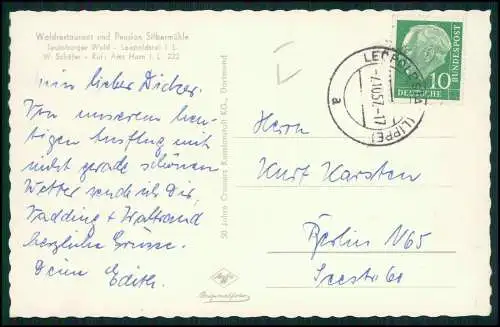 Waldrestaurant und Pension Silbermühle
Teutoburger Wald - Leopoldstal i. L.
W. Schäfer - Ruf: Amt Horn i. L. 222
Mein lieber Dicker.
Von unserem heu-
tigen Ausflug mit
nicht gerade schönem
Wetter sende ich Dir,
Vadding + Waltraud
herzliche Grüsse.
Deine Edith.
50 Jahre Cramers Kunstanstalt KG., Dortmund
LEOPOLDSTAL
(LIPPE)
-7.10.57.-17
a
10
DEUTSCHE
BUNDESPOST
Herrn
Kurt Karsten
Berlin N65
Seestr 61
Agfa